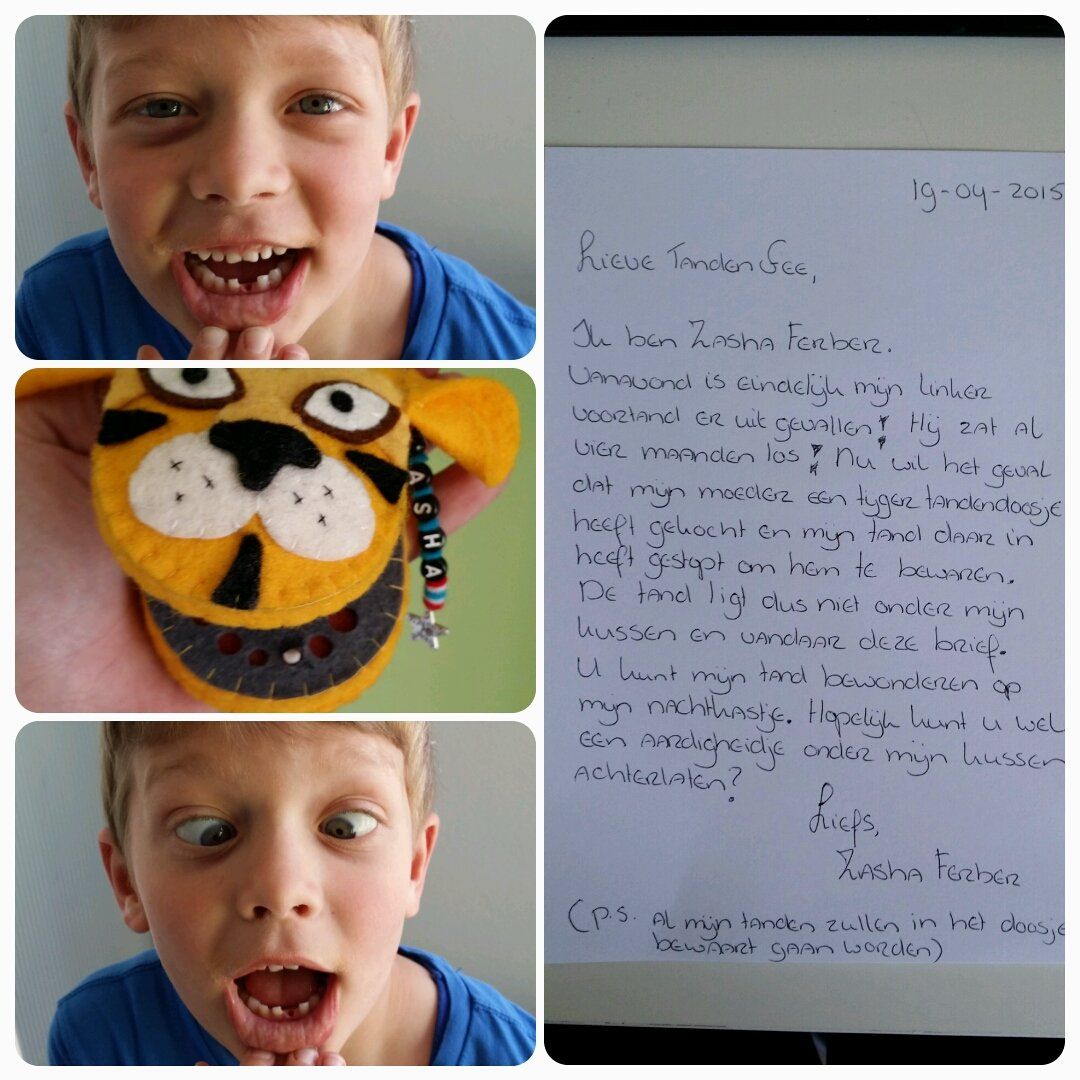 ASHA
19-04-2015
Lieve Tanden Fee,
Ik ben Zasha Ferber.
Vanavond is eindelijk mijn linker
voortand er uit gevallen! Hij zat al
vier maanden los! Nu wil het geval
dat mijn moeder een tijger tandendoosje
heeft gekocht en mijn tand daar in
heeft gestopt om hem te bewaren.
De tand ligt dus niet onder mijn
kussen en vandaar deze brief.
U kunt mijn tand bewonderen op
mijn nachtkastje. Hopelijk kunt u wel
een aardigheidje onder mijn kussen
achterlaten?
Liefs,
Zasha Ferber
(p.s. Al mijn tanden zullen in het doosje
bewaart gaan worden)